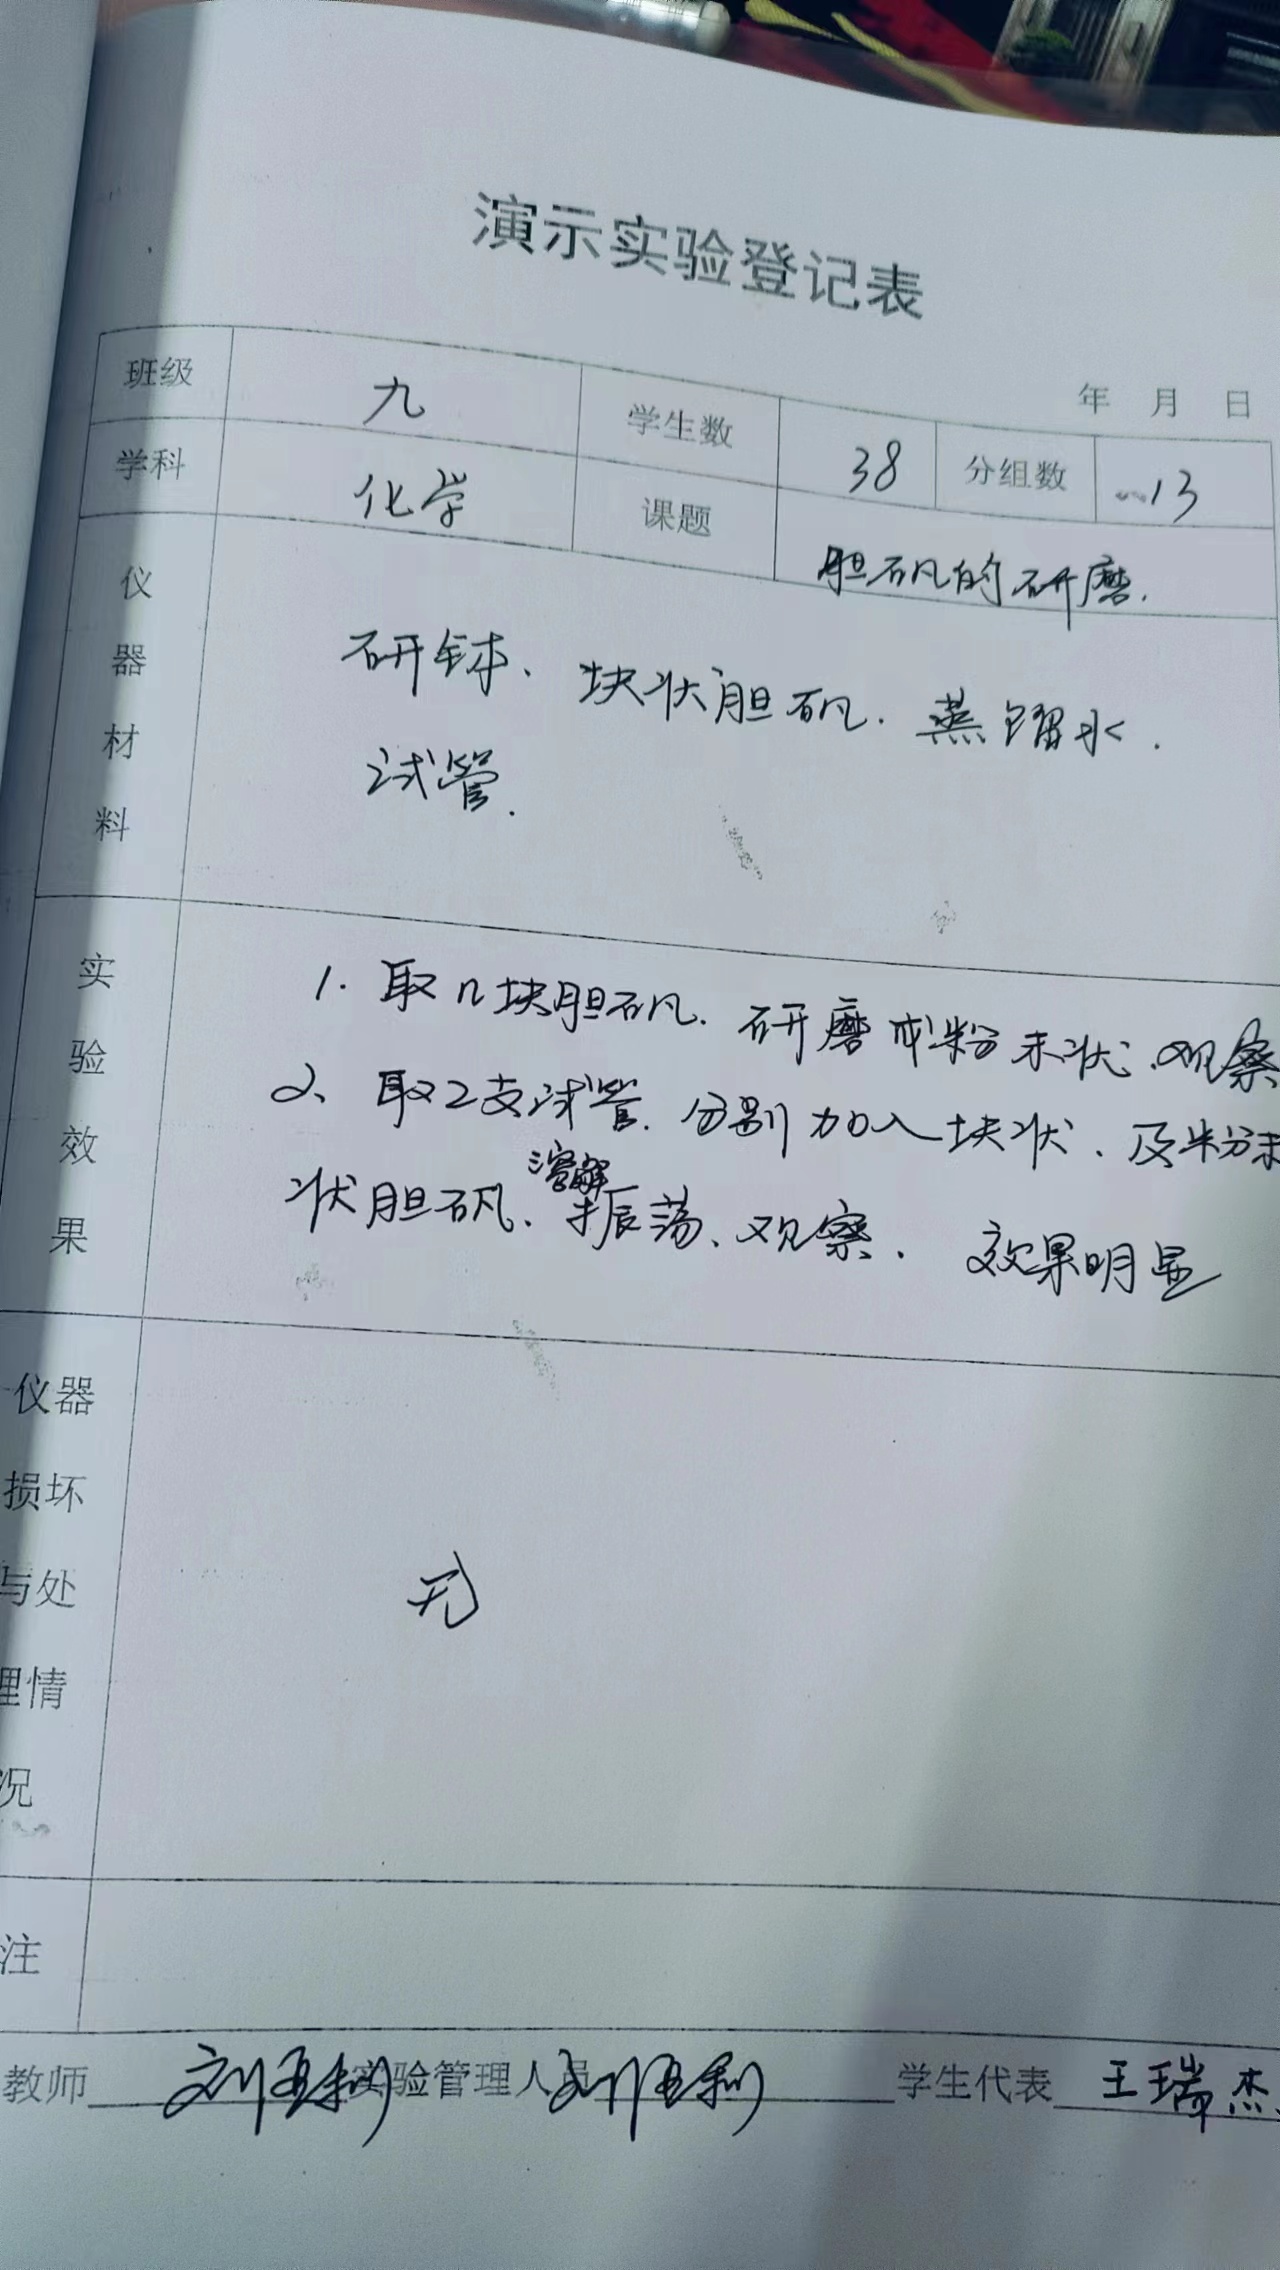 演示实验登记表
年 月 日
班级 九 学生数 38 分组数 13
学科 化学 课题 胆矾的研磨.
仪器材料
研钵、块状胆矾.蒸馏水.
试管.
实验效果
1. 取几块胆矾.研磨成粉末状.观察
2、取2支试管.分别加入块状、及粉末
状胆矾、溶解振荡、观察. 效果明显
仪器
损坏
与处
理情
况
无
注
教师 实验管理人员 学生代表 王瑞杰